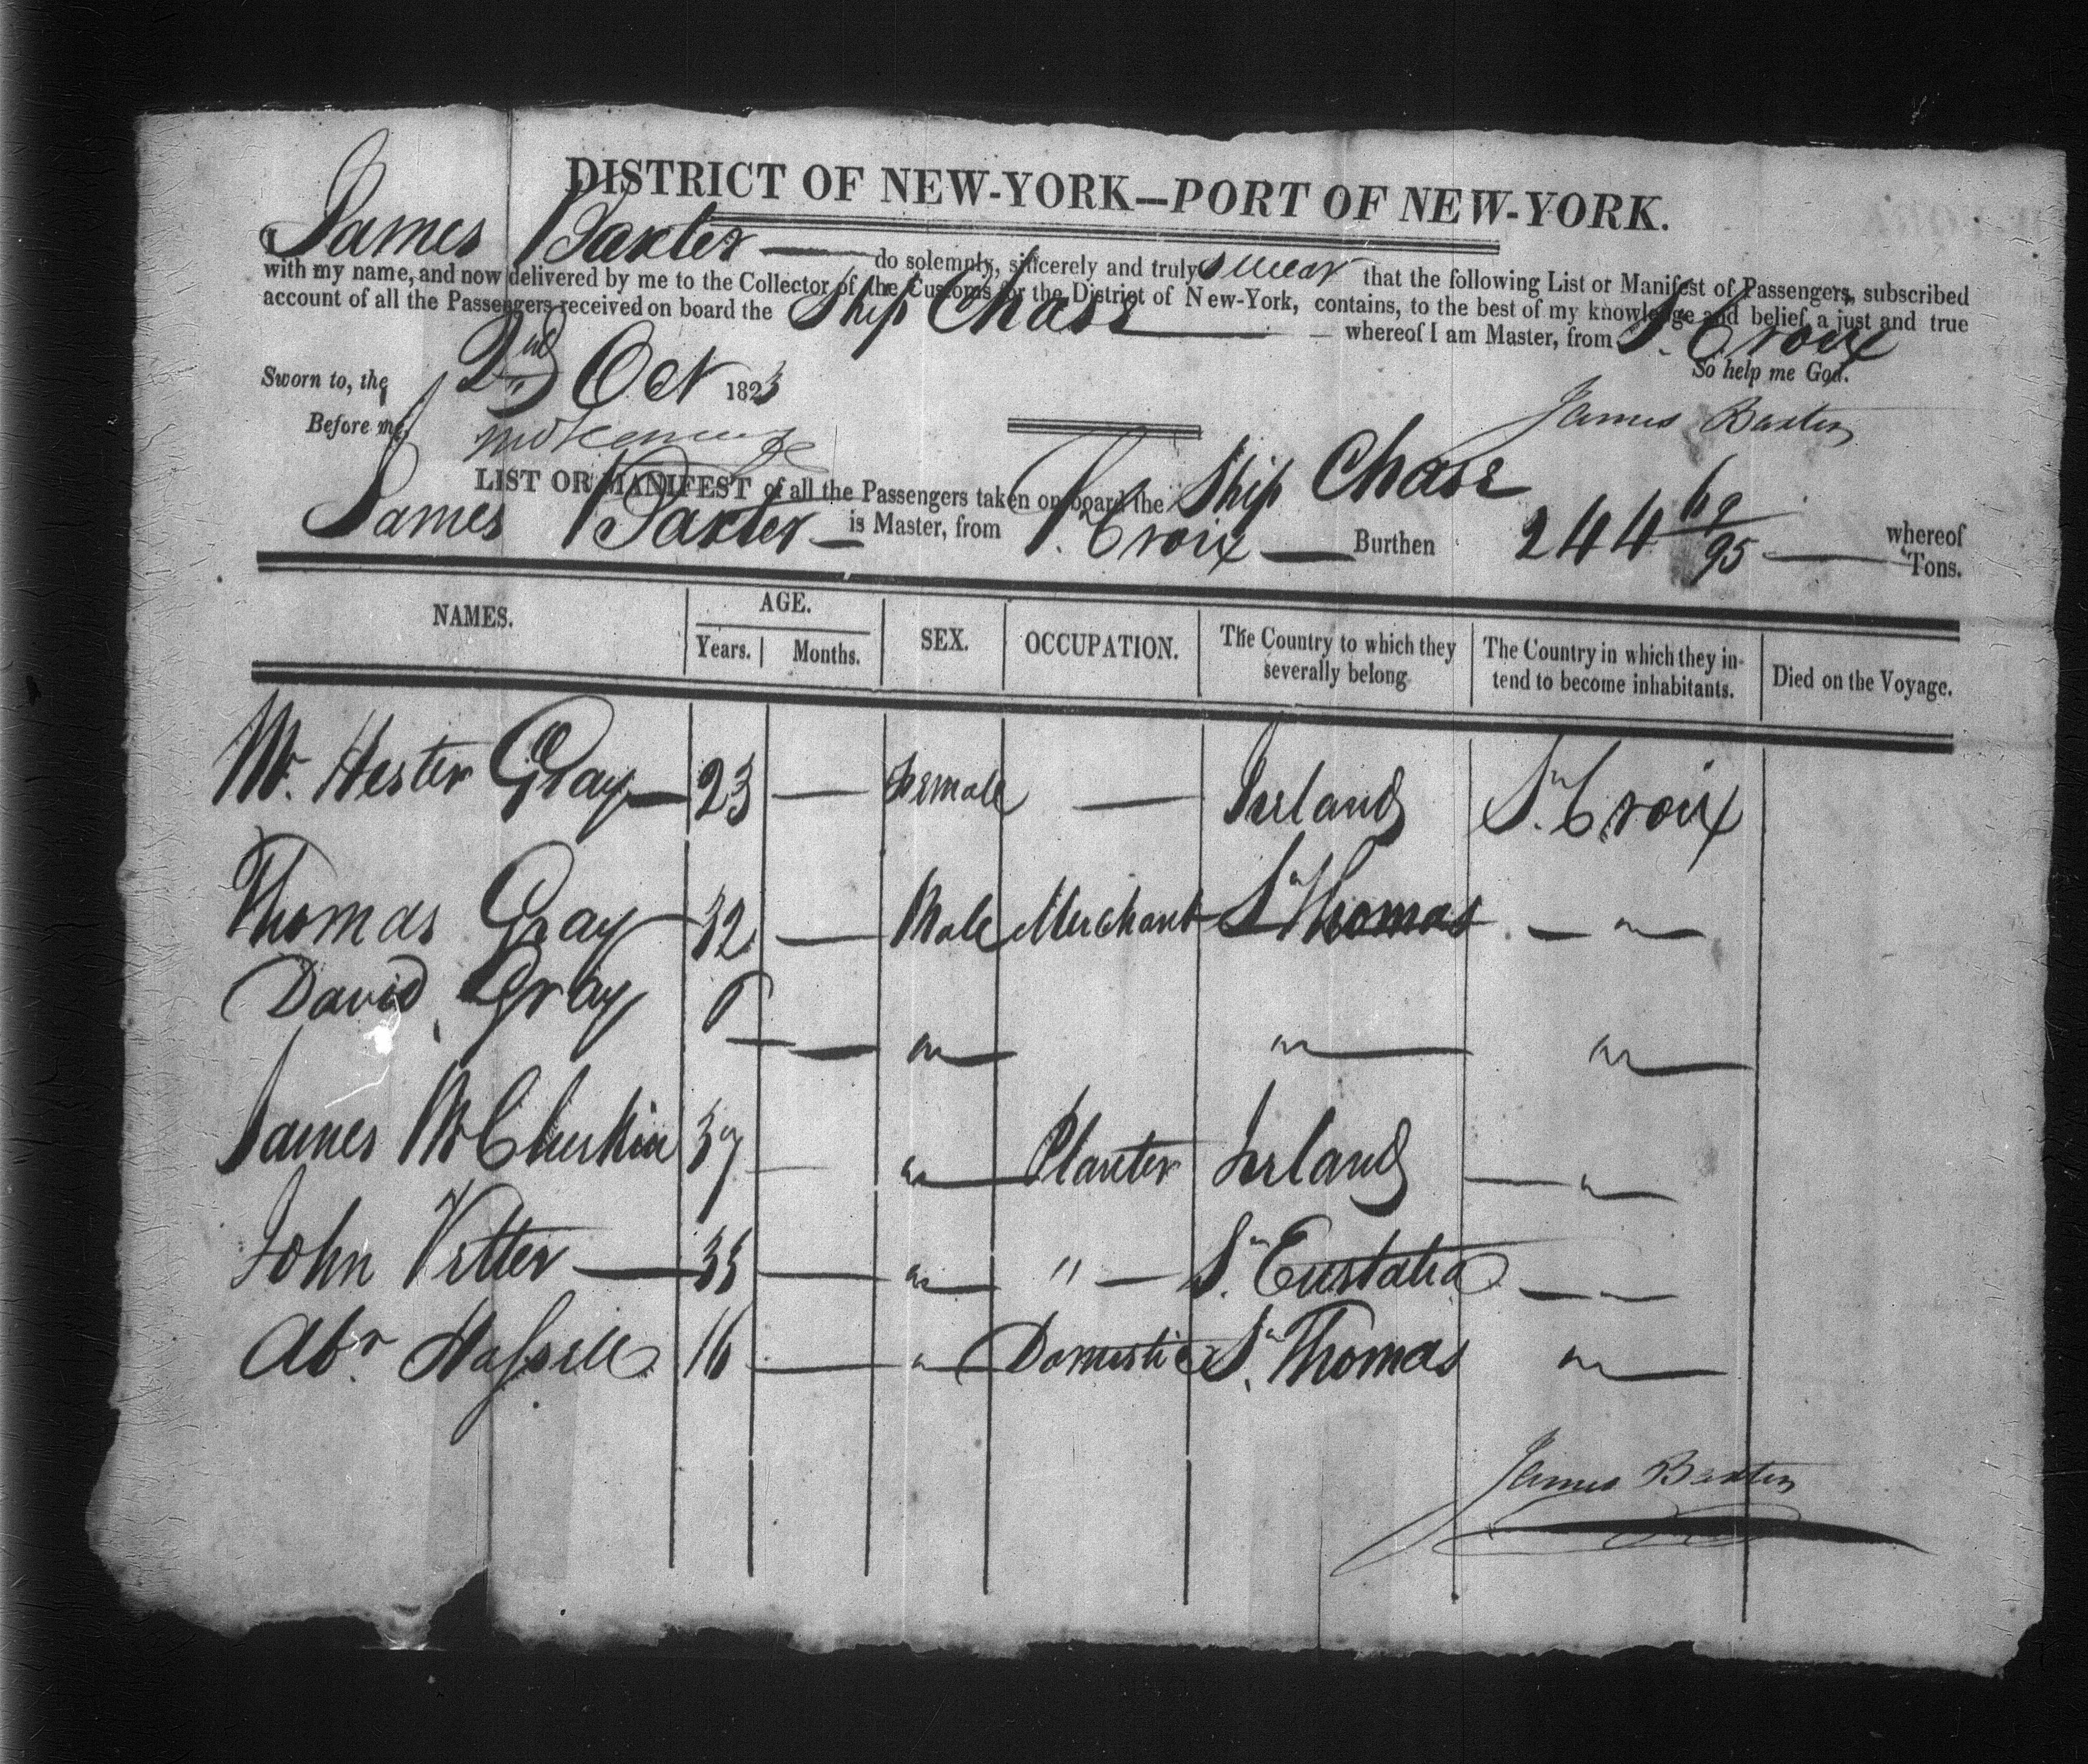 DISTRICT OF NEW-YORK—PORT OF NEW-YORK.
James Baxter — do solemnly, sincerely and truly swear that the following List or Manifest of Passengers, subscribed
with my name, and now delivered by me to the Collector of the Customs for the District of New-York, contains, to the best of my knowledge and belief, a just and true
account of all the Passengers received on board the Ship Chase — whereof I am Master, from St. Croix
So help me God.
Sworn to, the 2nd Oct 1823
James Baxter
Before me,
LIST OR MANIFEST of all the Passengers taken on board the Ship Chase whereof
James Baxter — is Master, from St. Croix — Burthen 244 69/95 — Tons.
NAMES. AGE. Years. Months. SEX. OCCUPATION. The Country to which they severally belong The Country in which they intend to become inhabitants. Died on the Voyage.
Mr. Hester Gray — 23 — Female — Irland St. Croix
Thomas Gray 32 — Male Merchant St Thomas — " —
David Gray — " — " — " —
James McCherkin 37 — " — Planter Irland — " —
John Vetter — 35 — " — " — St. Eustatia — " —
Abr. Hassell 16 — " — Domestic St. Thomas " —
James Baxter